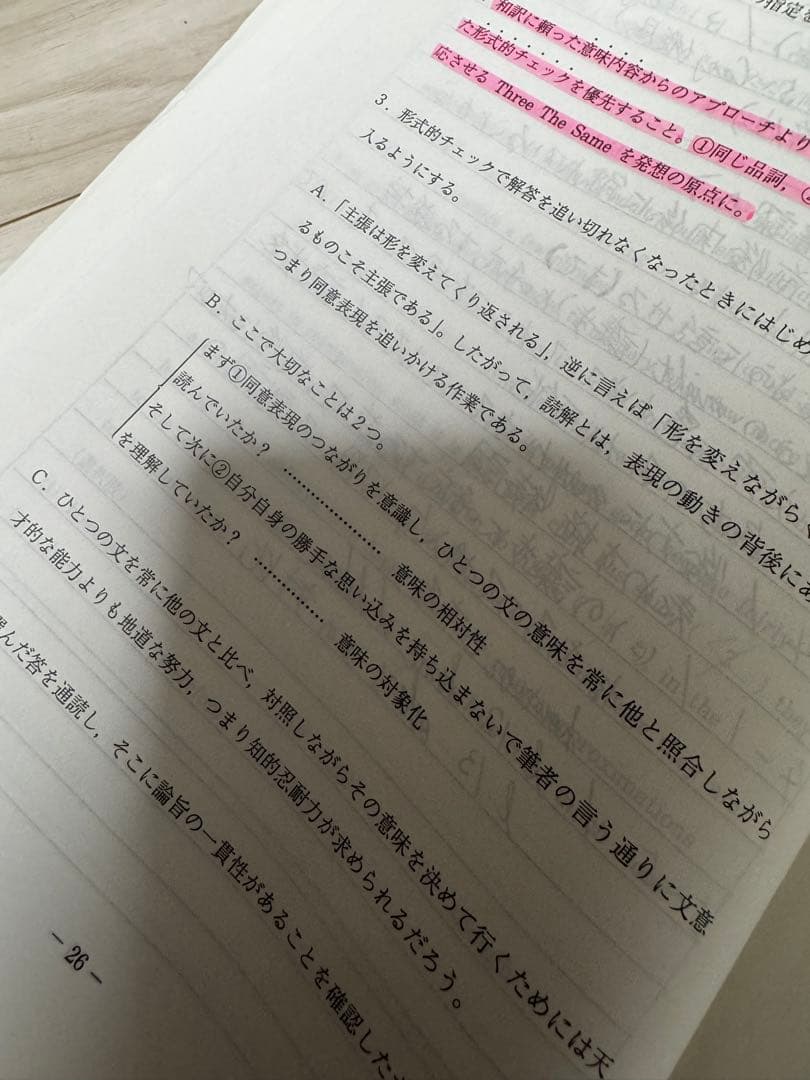 の指定を
和訳に頼った意味内容からのアプローチより
た形式的チェックを優先すること。①同じ品詞,
応させる Three The Same を発想の原点に。
3. 形式的チェックで解答を追い切れなくなったときにはじめ
入るようにする。
A.「主張は形を変えてくり返される」, 逆に言えば「形を変えながらく
るものこそ主張である」。したがって, 読解とは, 表現の動きの背後にあ
つまり同意表現を追いかける作業である。
B. ここで大切なことは2つ。
まず①同意表現のつながりを意識し, ひとつの文の意味を常に他と照合しながら
読んでいたか? ………………… 意味の相対性
そして次に②自分自身の勝手な思い込みを持ち込まないで筆者の言う通りに文意
を理解していたか? …………… 意味の対象化
C. ひとつの文を常に他の文と比べ, 対照しながらその意味を決めて行くためには天
才的な能力よりも地道な努力, つまり知的忍耐力が求められるだろう。
んだ答を通読し, そこに論旨の一貫性があることを確認した
- 26 -